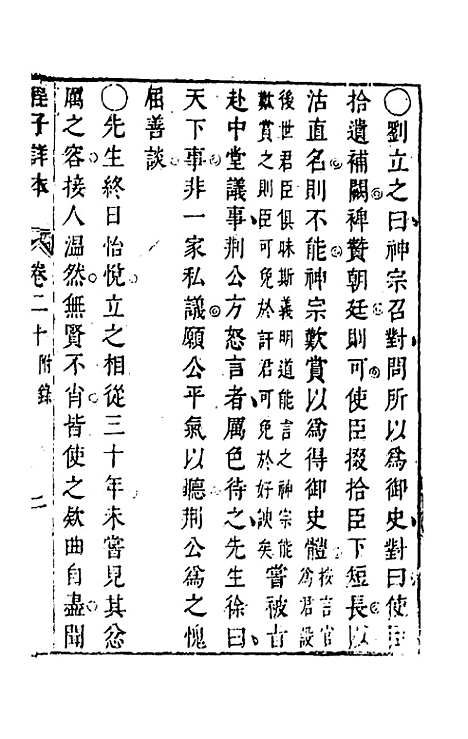 ○劉立之曰神宗召對問所以爲御史對曰使臣
拾遺補闕裨贊朝廷則可使臣掇拾臣下短長以
沽直名則不能神宗歎賞以爲得御史體按言官爲君設
後世君臣俱昧斯義明道能言之神宗能
歎賞之則臣可免於訐君可免於好諛矣嘗被旨
赴中堂議事荆公方怒言者厲色待之先生徐曰
天下事非一家私議願公平氣以聽荆公爲之愧
屈善談
○先生終日怡悅立之相從三十年未嘗見其忿
厲之容接人溫然無賢不肖皆使之欵曲自盡聞
程子詳本
卷二十附錄
二